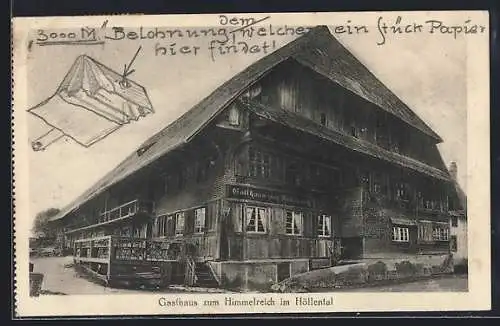 „3000 M" Belohnung, dem welcher ein Stück Papier
hier findet!
Gasthaus zum Himmelreich im Höllental